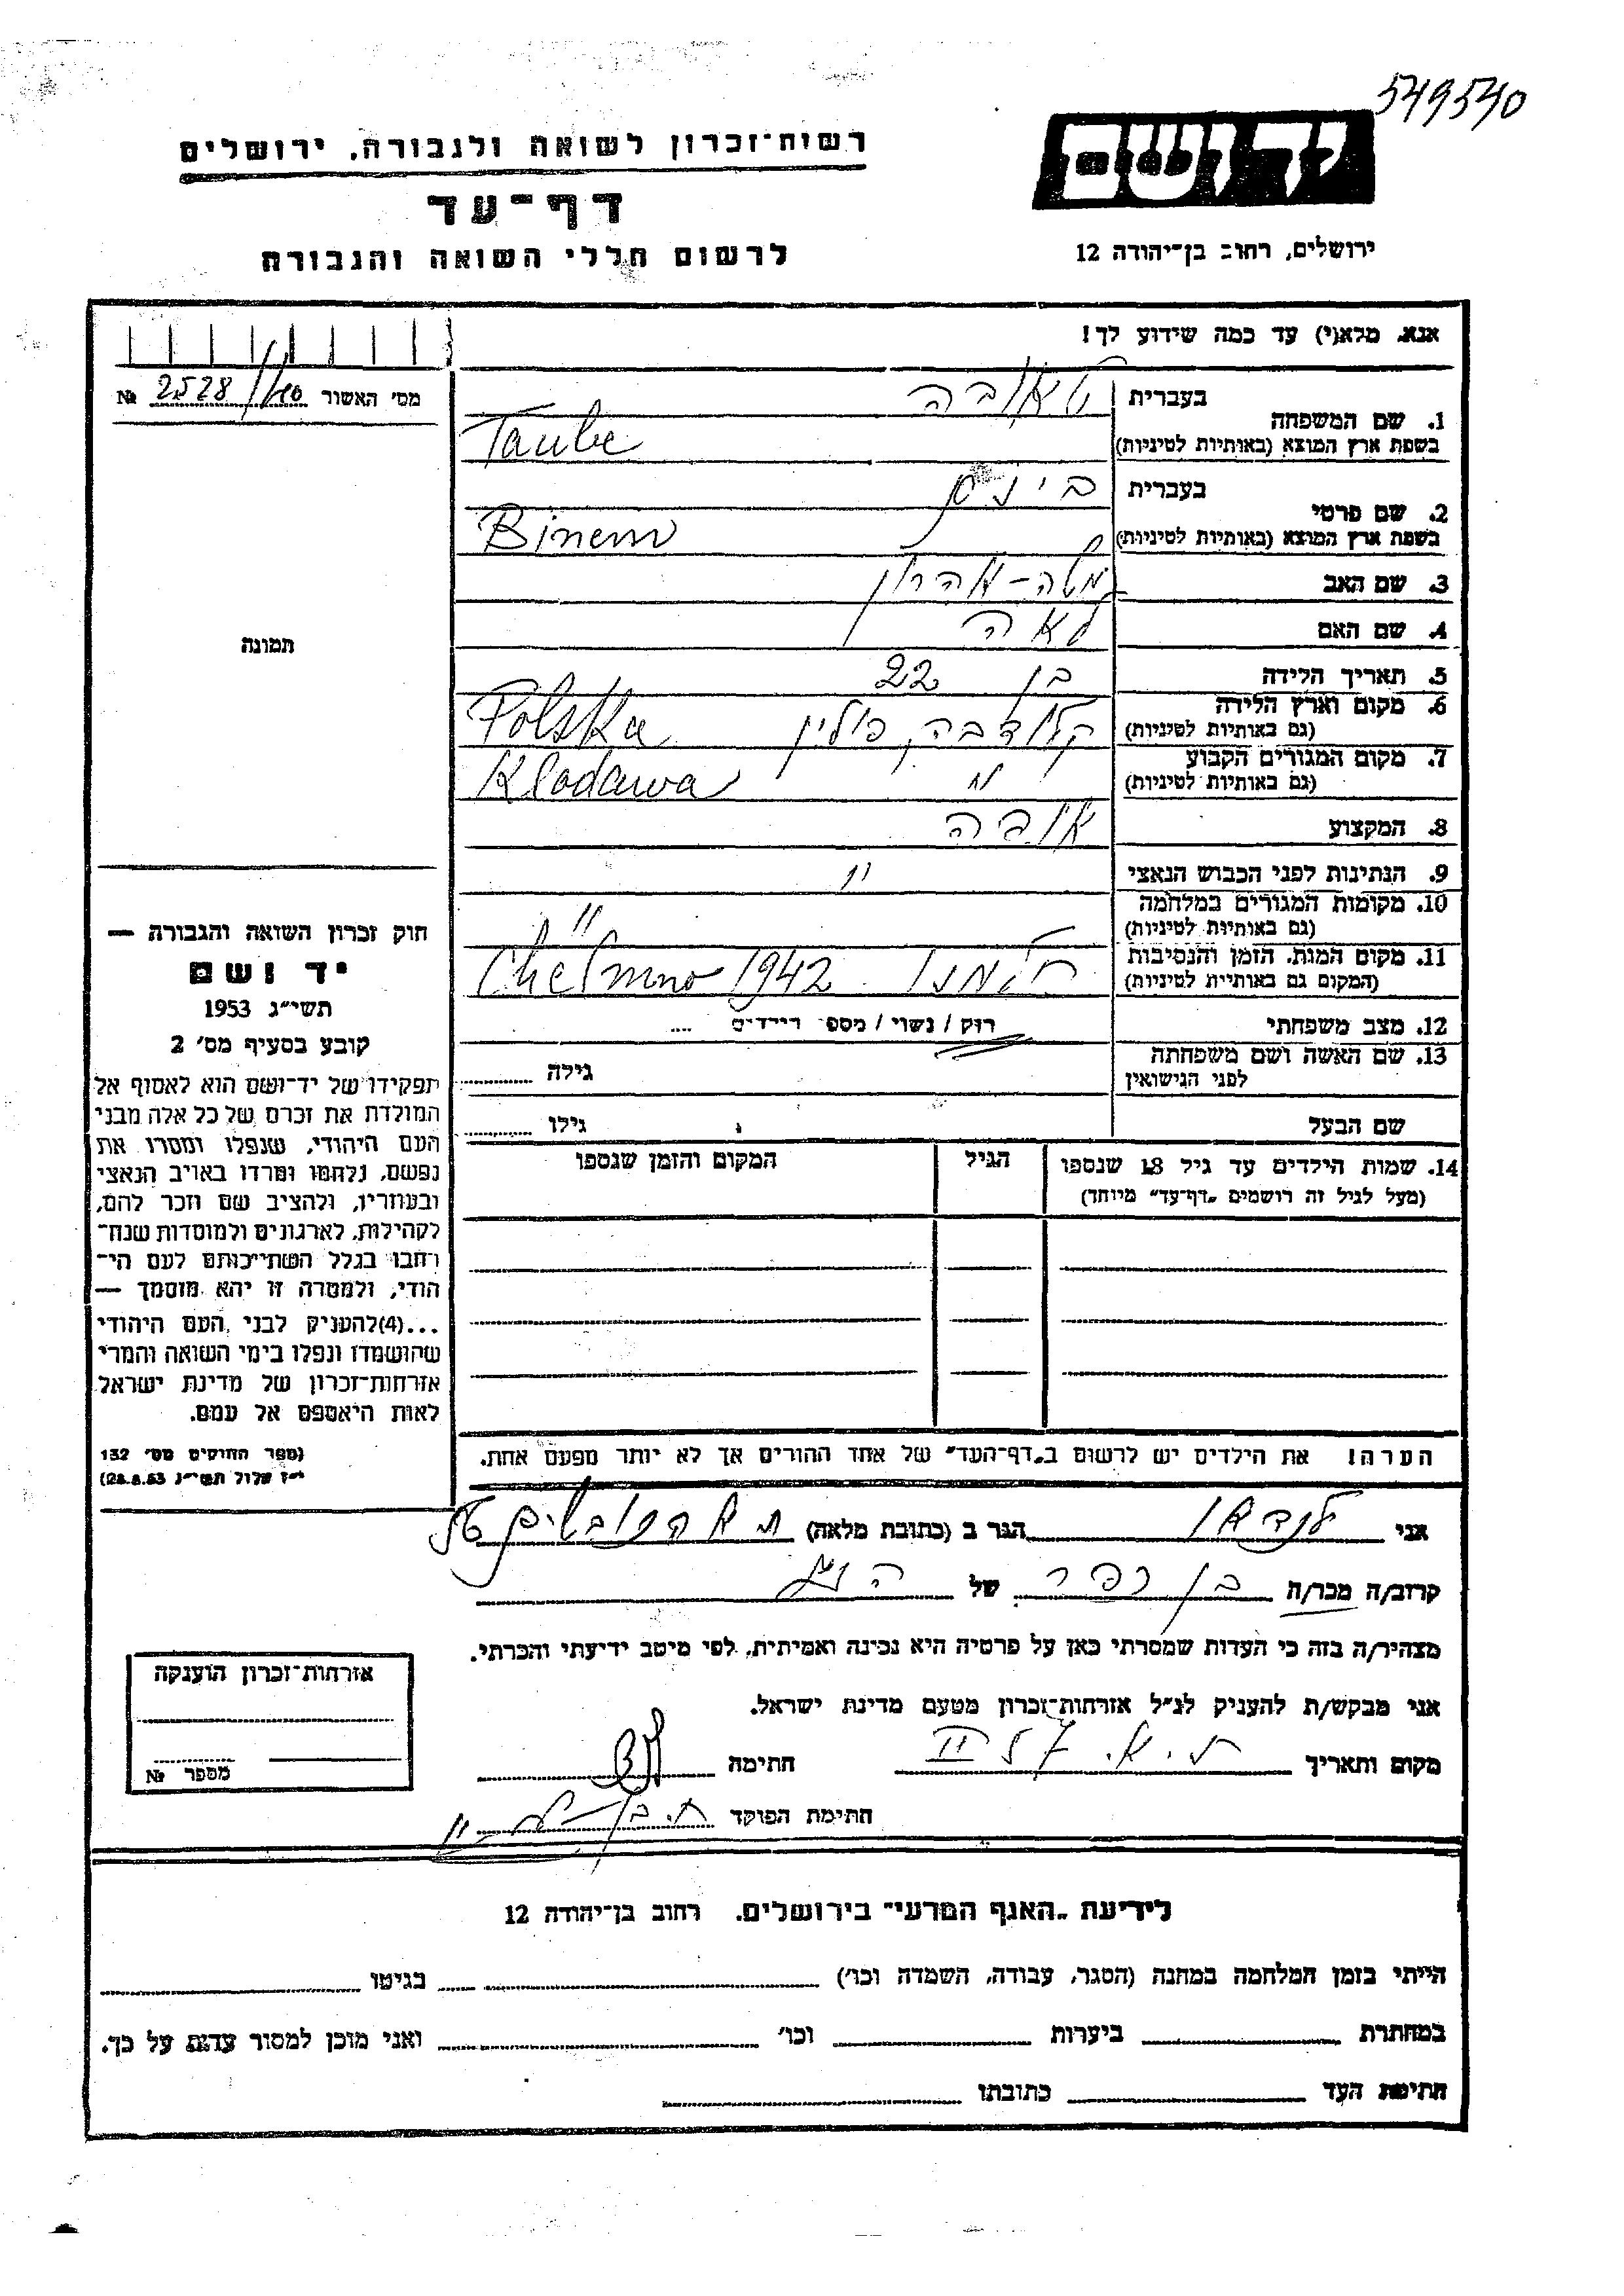 549540
יד ושם
רשות־זכרון לשואה ולגבורה, ירושלים
דף־עד
לרשום חללי השואה והגבורה
ירושלים, רחוב בן־יהודה 12
אנא, מלא(י) עד כמה שידוע לך!
מס׳ האשור 2528/140 №
1. שם המשפחה
בעברית טאובה
בשפת ארץ המוצא (באותיות לטיניות) Taube
2. שם פרטי
בעברית בינם
בשפת ארץ המוצא (באותיות לטיניות) Binem
3. שם האב משה-אהרון
4. שם האם לאה
5. תאריך הלידה בן 22
6. מקום וארץ הלידה
(גם באותיות לטיניות) קלודבה, פולין Polska
7. מקום המגורים הקבוע
(גם באותיות לטיניות) " Klodawa
8. המקצוע
9. הנתינות לפני הכבוש הנאצי
10. מקומות המגורים במלחמה
(גם באותיות לטיניות) "
11. מקום המות, הזמן והנסיבות
(המקום גם באותיות לטיניות) חלמנו Chelmno 1942
12. מצב משפחתי רווק / נשוי / מספר הילדים ....
13. שם האשה ושם משפחתה
לפני הנישואין גילה
שם הבעל גילו
14. שמות הילדים עד גיל 18 שנספו הגיל המקום והזמן שנספו
(מעל לגיל זה רושמים „דף־עד״ מיוחד)
הערה! את הילדים יש לרשום ב„דף־העד״ של אחד ההורים אך לא יותר מפעם אחת.
תמונה
חוק זכרון השואה והגבורה —
יד ושם
תשי״ג 1953
קובע בסעיף מס׳ 2
תפקידו של יד־ושם הוא לאסוף אל
המולדת את זכרם של כל אלה מבני
העם היהודי, שנפלו ומסרו את
נפשם, נלחמו ומרדו באויב הנאצי
ובעוזריו, ולהציב שם וזכר להם,
לקהילות, לארגונים ולמוסדות שנח־
רבו בגלל השתייכותם לעם הי־
הודי, ולמטרה זו יהא מוסמך —
...(4)להעניק לבני העם היהודי
שהושמדו ונפלו בימי השואה והמרי
אזרחות־זכרון של מדינת ישראל
לאות היאספם אל עמם.
(ספר החוקים מס׳ 132
י״ז אלול תשי״ג 28.8.53)
אני לנדאו הגר ב (כתובת מלאה) ת"א
קרוב/ה מכר/ה בן כפר של הנ"ל
מצהיר/ה בזה כי העדות שמסרתי כאן על פרטיה היא נכונה ואמיתית, לפי מיטב ידיעתי והכרתי.
אני מבקש/ת להעניק לנ״ל אזרחות־זכרון מטעם מדינת ישראל.
מקום ותאריך ת.א. חתימה
חתימת הפוקד
אזרחות־זכרון הוענקה
מספר №
לידיעת „האגף המדעי״ בירושלים, רחוב בן־יהודה 12
הייתי בזמן המלחמה במחנה (הסגר, עבודה, השמדה וכו׳) בגיטו
במחתרת ביערות וכו׳ ואני מוכן למסור עדות על כך.
חתימת העד כתובתו